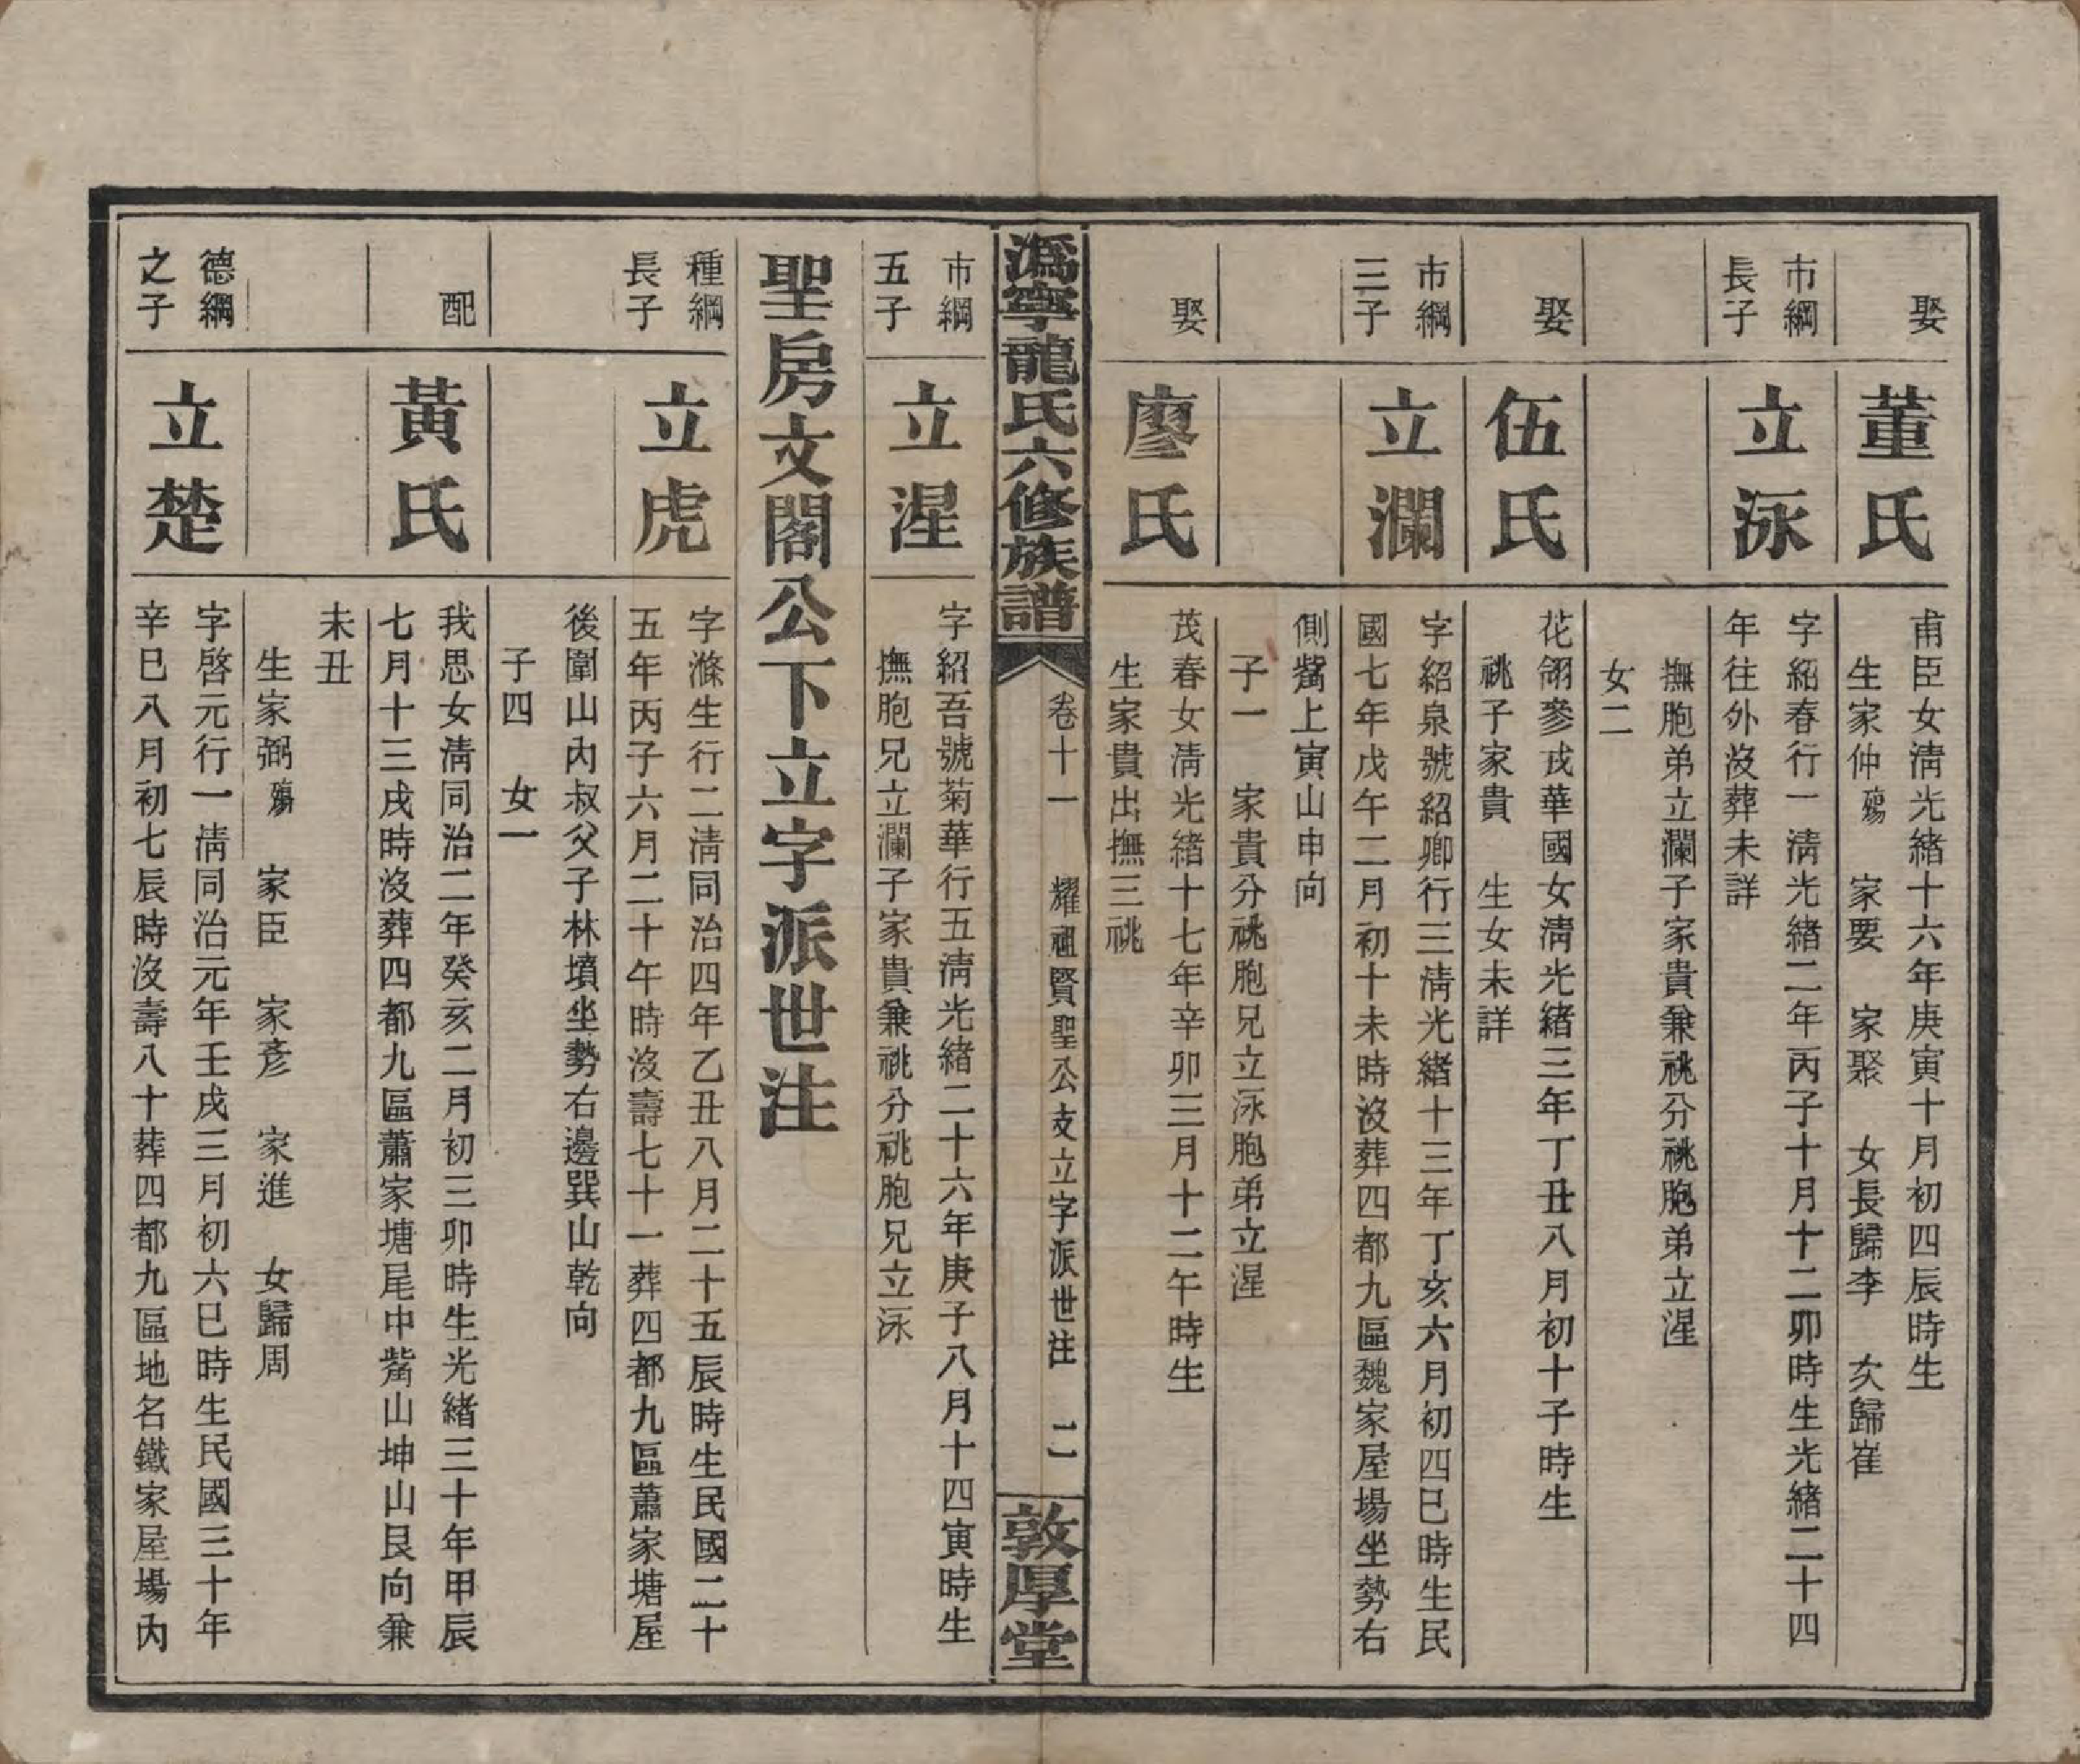 娶
董氏
甫臣女淸光緒十六年庚寅十月初四辰時生
生家仲殤 家要 家聚 女長歸李 次歸崔
市綱
長子
立泳
字紹春行一淸光緒二年丙子十月十二卯時生光緒二十四
年往外沒葬未詳
撫胞弟立瀾子家貴兼祧分祧胞弟立湦
女二
娶
伍氏
花翎參戎華國女淸光緒三年丁丑八月初十子時生
祧子家貴 生女未詳
市綱
三子
立瀾
字紹泉號紹卿行三淸光緒十三年丁亥六月初四巳時生民
國七年戊午二月初十未時沒葬四都九區魏家屋場坐勢右
側嶲上寅山申向
子一 家貴分祧胞兄立泳胞弟立湦
娶
廖氏
茂春女淸光緒十七年辛卯三月十二午時生
生家貴出撫三祧
溈寧龍氏六修族譜
卷十一 耀祖賢聖公支立字派世注 二
敦厚堂
市綱
五子
立湦
字紹吾號菊華行五淸光緒二十六年庚子八月十四寅時生
撫胞兄立瀾子家貴兼祧分祧胞兄立泳
聖房文閣公下立字派世注
種綱
長子
立虎
字滌生行二淸同治四年乙丑八月二十五辰時生民國二十
五年丙子六月二十午時沒壽七十一葬四都九區蕭家塘屋
後圍山內叔父子林墳坐勢右邊巽山乾向
子四 女一
配
黃氏
我思女淸同治二年癸亥二月初三卯時生光緒三十年甲辰
七月十三戌時沒葬四都九區蕭家塘尾中嶲山坤山艮向兼
未丑
生家弼殤 家臣 家彥 家進 女歸周
德綱
之子
立楚
字啓元行一淸同治元年壬戌三月初六巳時生民國三十年
辛巳八月初七辰時沒壽八十葬四都九區地名鐵家屋場內